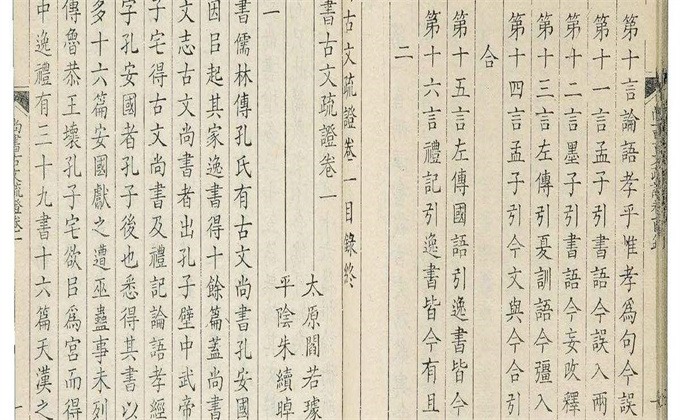 第十言論語孝乎惟孝為句今誤
第十一言孟子引書語今誤入兩
第十二言墨子引書語今妄改釋
第十三言左傳引夏訓語今彊入
第十四言孟子引今文與今合引
合
第十五言左傳國語引逸書皆今
第十六言禮記引逸書皆今有且
二
古文疏證卷一目錄終
書古文疏證卷一
太原閻若璩
平陰朱續晫
一
書儒林傳孔氏有古文尚書孔安國
因㠯起其家逸書得十餘篇蓋尚書
文志古文尚書者出孔子壁中武帝
子宅得古文尚書及禮記論語孝經
字孔安國者孔子後也悉得其書以
多十六篇安國獻之遭巫蠱事未列
傳魯恭王壞孔子宅欲㠯為宮而得
中逸禮有三十九書十六篇天漢之
尚書古文疏證卷一